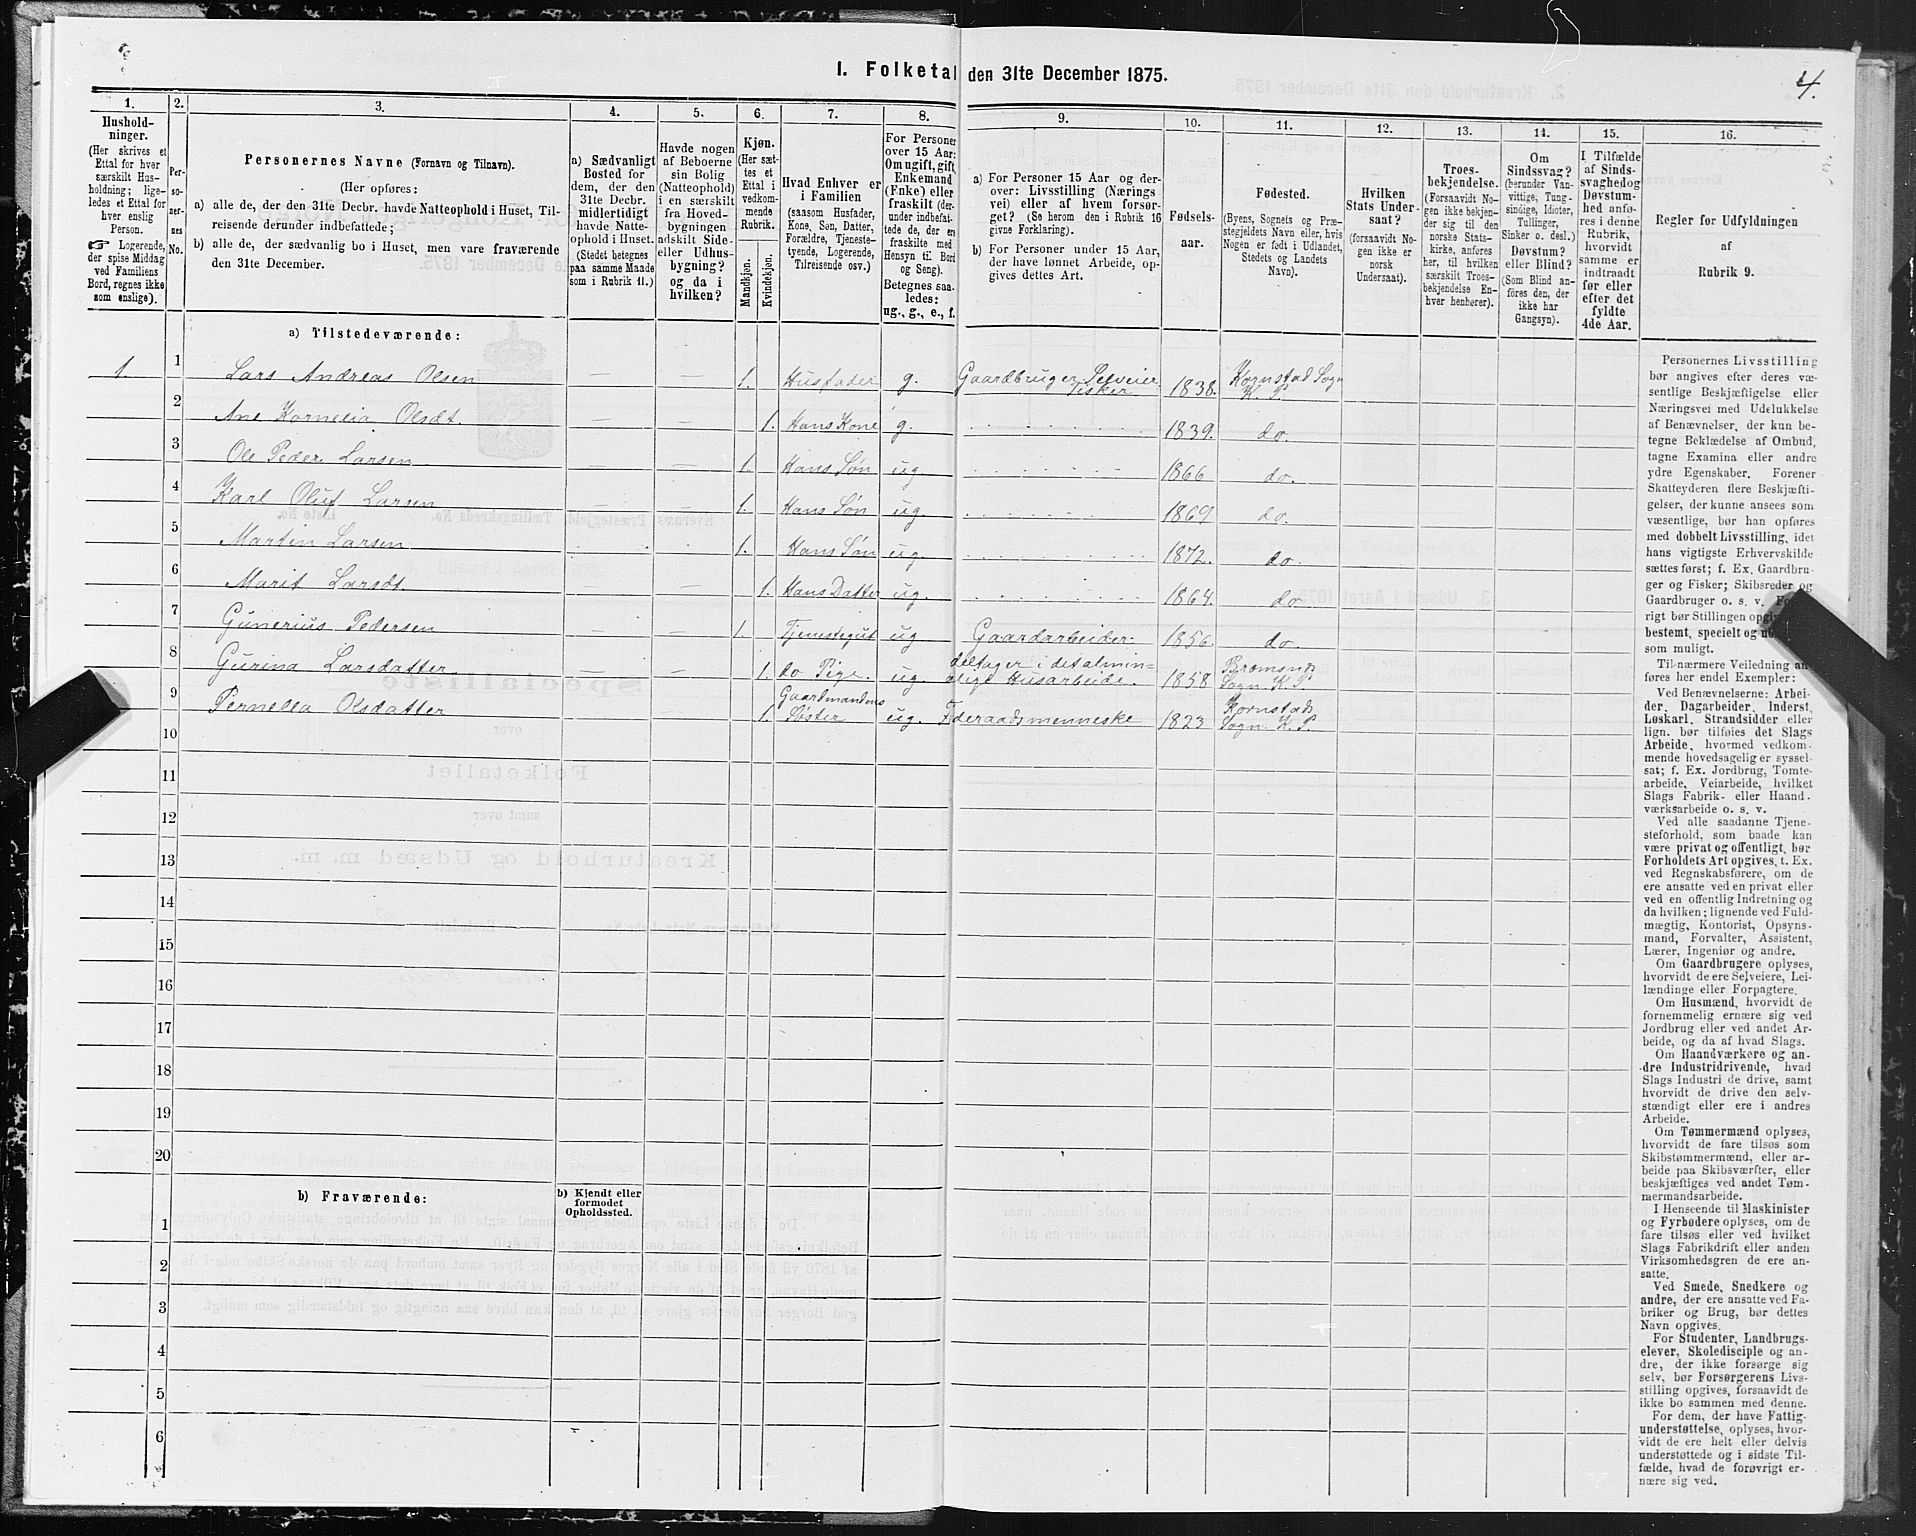 4.
I. Folketal den 31te December 1875.
1.
Hushold-
ninger.
(Her skrives et
Ettal for hver
særskilt Hus-
holdning; lige-
ledes et Ettal for
hver enslig
Person.
☞ Logerende,
der spise Middag
ved Familiens
Bord, regnes ikke
som enslige).
2.
Per-
so-
ner-
nes
No.
3.
Personernes Navne (Fornavn og Tilnavn).
(Her opføres:
a) alle de, der den 31te Decbr. havde Natteophold i Huset, Til-
reisende derunder indbefattede;
b) alle de, der sædvanlig bo i Huset, men vare fraværende
den 31te December.
4.
a) Sædvanligt
Bosted for
dem, der den
31te Decbr.
midlertidigt
havde Natte-
ophold i Huset.
(Stedet betegnes
paa samme Maade
som i Rubrik 11.)
5.
Havde nogen
af Beboerne
sin Bolig
(Natteophold)
i en særskilt
fra Hoved-
bygningen
adskilt Side-
eller Udhus-
bygning?
og da i
hvilken?
6.
Kjøn.
(Her sæt-
tes et
Ettal i
vedkom-
mende
Rubrik.
Mandkjøn.
Kvindekjøn.
7.
Hvad Enhver er
i Familien
(saasom Husfader,
Kone, Søn, Datter,
Forældre, Tjeneste-
tyende, Logerende,
Tilreisende osv.)
8.
For Personer
over 15 Aar:
Om ugift, gift,
Enkemand
(Enke) eller
fraskilt (der-
under indbefat-
tede de, der ere
fraskilte med
Hensyn til Bord
og Seng).
Betegnes saa-
ledes:
ug., g., e., f.
9.
a) For Personer 15 Aar og der-
over: Livsstilling (Nærings-
vei) eller af hvem forsør-
get? (Se herom den i Rubrik 16
givne Forklaring).
b) For Personer under 15 Aar,
der have lønnet Arbeide, op-
gives dettes Art.
10.
Fødsels-
aar.
11.
Fødested.
(Byens, Sognets og Præ-
stegjeldets Navn eller, hvis
Nogen er født i Udlandet,
Stedets og Landets
Navn).
12.
Hvilken
Stats Under-
saat?
(forsaavidt No-
gen ikke er
norsk
Undersaat).
13.
Troes-
bekjendelse.
(Forsaavidt No-
gen ikke bekjen-
der sig til den
norske Stats-
kirke, anføres
her, til hvilken
særskilt Troes-
bekjendelse En-
hver henhører).
14.
Om
Sindssvag?
(herunder Van-
vittige, Tung-
sindige, Idioter,
Tullinger,
Sinker o. desl.)
Døvstum?
eller Blind?
(Som Blind an-
føres den, der
ikke har
Gangsyn).
15.
I Tilfælde
af Sinds-
svaghed og
Døvstum-
hed anfø-
res i denne
Rubrik,
hvorvidt
samme er
indtraadt
før eller
efter det
fyldte
4de Aar.
16.
Regler for Udfyldningen
af
Rubrik 9.
a) Tilstedeværende:
1 1 Lars Andreas Olsen — — 1. Husfader g. Gaardbruger Selveier Fisker 1838. Kornstad Sogn K. P.
2 Ane Kornelia Olsdt. — — 1. Hans Kone g. 1839. do.
3 Ole Peder Larsen — — 1. Hans Søn ug. 1866 do.
4 Karl Oluf Larsen — — 1. Hans Søn ug. 1869 do.
5 Martin Larsen 1. Hans Søn ug. 1872. do.
6 Marit Larsdt. — 1. Hans Datter ug. 1864. do
7 Gunerius Pedersen — — 1. Tjenstegut ug Gaardarbeider. 1856. do.
8 Gurina Larsdatter — — 1. do Pige. ug. deltager i det almin=
delige Husarbeide. 1858 Bremsnes Sogn. K. P.
9 Pernella Olsdatter 1. Gaardmandens Søster ug. Føderaadsmenneske 1823 Kornstads Sogn. K. P.
10
11
12
13
14
15
16
17
18
19
20
b) Fraværende:
b) Kjendt eller
formodet
Opholdssted.
1
2
3
4
5
6
Personernes Livsstilling
bør angives efter deres væ-
sentlige Beskjæftigelse eller
Næringsvei med Udelukkelse
af Benævnelser, der kun be-
tegne Beklædelse af Ombud,
tagne Examina eller andre
ydre Egenskaber. Forener
Skatteyderen flere Beskjæfti-
gelser, der kunne ansees som
væsentlige, bør han opføres
med dobbelt Livsstilling, idet
hans vigtigste Erhvervskilde
sættes først; f. Ex. Gaardbru-
ger og Fisker; Skibsreder og
Gaardbruger o. s. v.
rigt bør Stillingen
bestemt, specielt og
som muligt.
Til nærmere Veiledning
føres her endel Exempler:
Ved Benævnelserne: Arbei-
der, Dagarbeider, Inderst,
Løskarl, Strandsidder eller
lign. bør tilføies det Slags
Arbeide, hvormed vedkom-
mende hovedsagelig er syssel-
sat; f. Ex. Jordbrug, Tomte-
arbeide, Veiarbeide, hvilket
Slags Fabrik- eller Haand-
værksarbeide o. s. v.
Ved alle saadanne Tjene-
steforhold, som baade kan
være privat og offentligt, bør
Forholdets Art opgives, t. Ex.
ved Regnskabsførere, om de
ere ansatte ved en privat eller
ved en offentlig Indretning og
da hvilken; lignende ved Fuld-
mægtig, Kontorist, Opsyns-
mand, Forvalter, Assistent,
Lærer, Ingeniør og andre.
Om Gaardbrugere oplyses,
hvorvidt de ere Selveiere, Lei-
lændinge eller Forpagtere.
Om Husmænd, hvorvidt de
fornemmelig ernære sig ved
Jordbrug eller ved andet Ar-
beide, og da af hvad Slags.
Om Haandværkere og an-
dre Industridrivende, hvad
Slags Industri de drive, samt
hvorvidt de drive den selv-
stændigt eller ere i andres
Arbeide.
Om Tømmermænd oplyses,
hvorvidt de fare tilsøs som
Skibstømmermænd, eller ar-
beide paa Skibsværfter, eller
beskjæftiges ved andet Tøm-
mermandsarbeide.
I Henseende til Maskinister
og Fyrbødere oplyses, om de
fare tilsøs eller ved hvilket
Slags Fabrikdrift eller anden
Virksomhedsgren de ere an-
satte.
Ved Smede, Snedkere og
andre, der ere ansatte ved Fa-
briker og Brug, bør dettes
Navn opgives.
For Studenter, Landbrugs-
elever, Skoledisciple og an-
dre, der ikke forsørge sig
selv, bør Forsørgerens Livs-
stilling opgives, forsaavidt de
ikke bo sammen med denne.
For dem, der have Fattig-
understøttelse, oplyses, hvor-
vidt de ere helt eller delvis
understøttede og i sidste Til-
fælde, hvad de forøvrigt er-
nære sig ved.